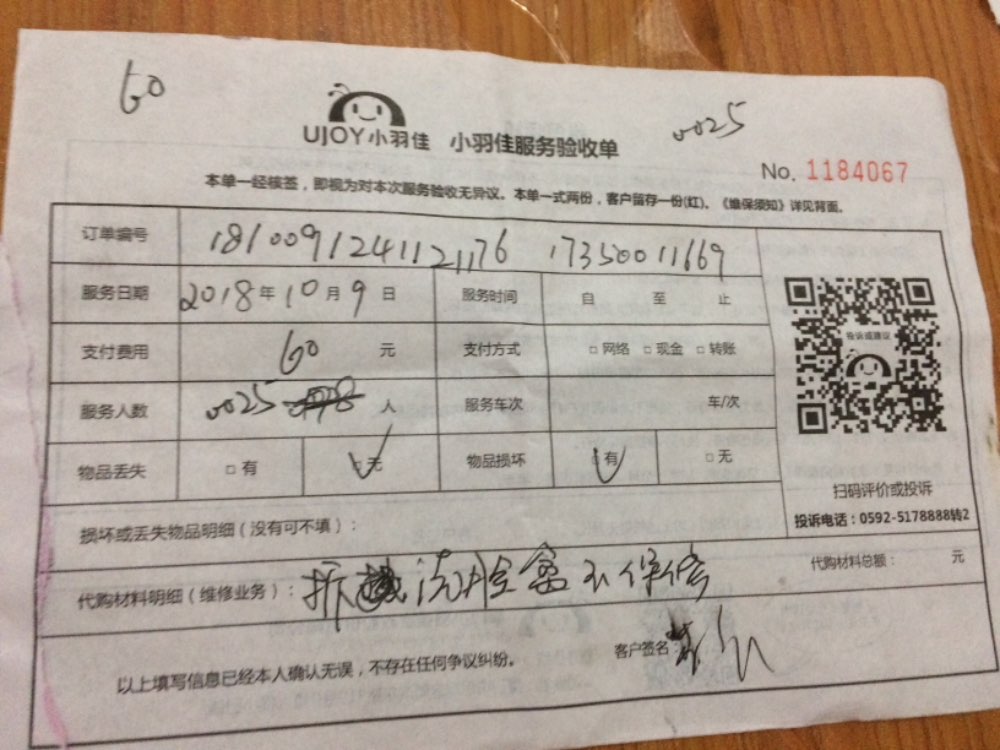 60
0025
UJOY小羽佳 小羽佳服务验收单
No. 1184067
本单一经核签，即视为对本次服务验收无异议。本单一式两份，客户留存一份(红)、《维保须知》详见背面。
订单编号 1810091241121176 17350011669
服务日期 2018年10月9日 服务时间 自 至 止
支付费用 60 元 支付方式 □网络 □现金 □转账
投诉或建议
服务人数 0025 人 服务车次 车/次
物品丢失 □有 □无 物品损坏 □有 □无
扫码评价或投诉
投诉电话：0592-5178888转2
损坏或丢失物品明细（没有可不填）：
代购材料总额： 元
代购材料明细（维修业务）：拆 洗 不保修
客户签名：
以上填写信息已经本人确认无误，不存在任何争议纠纷。